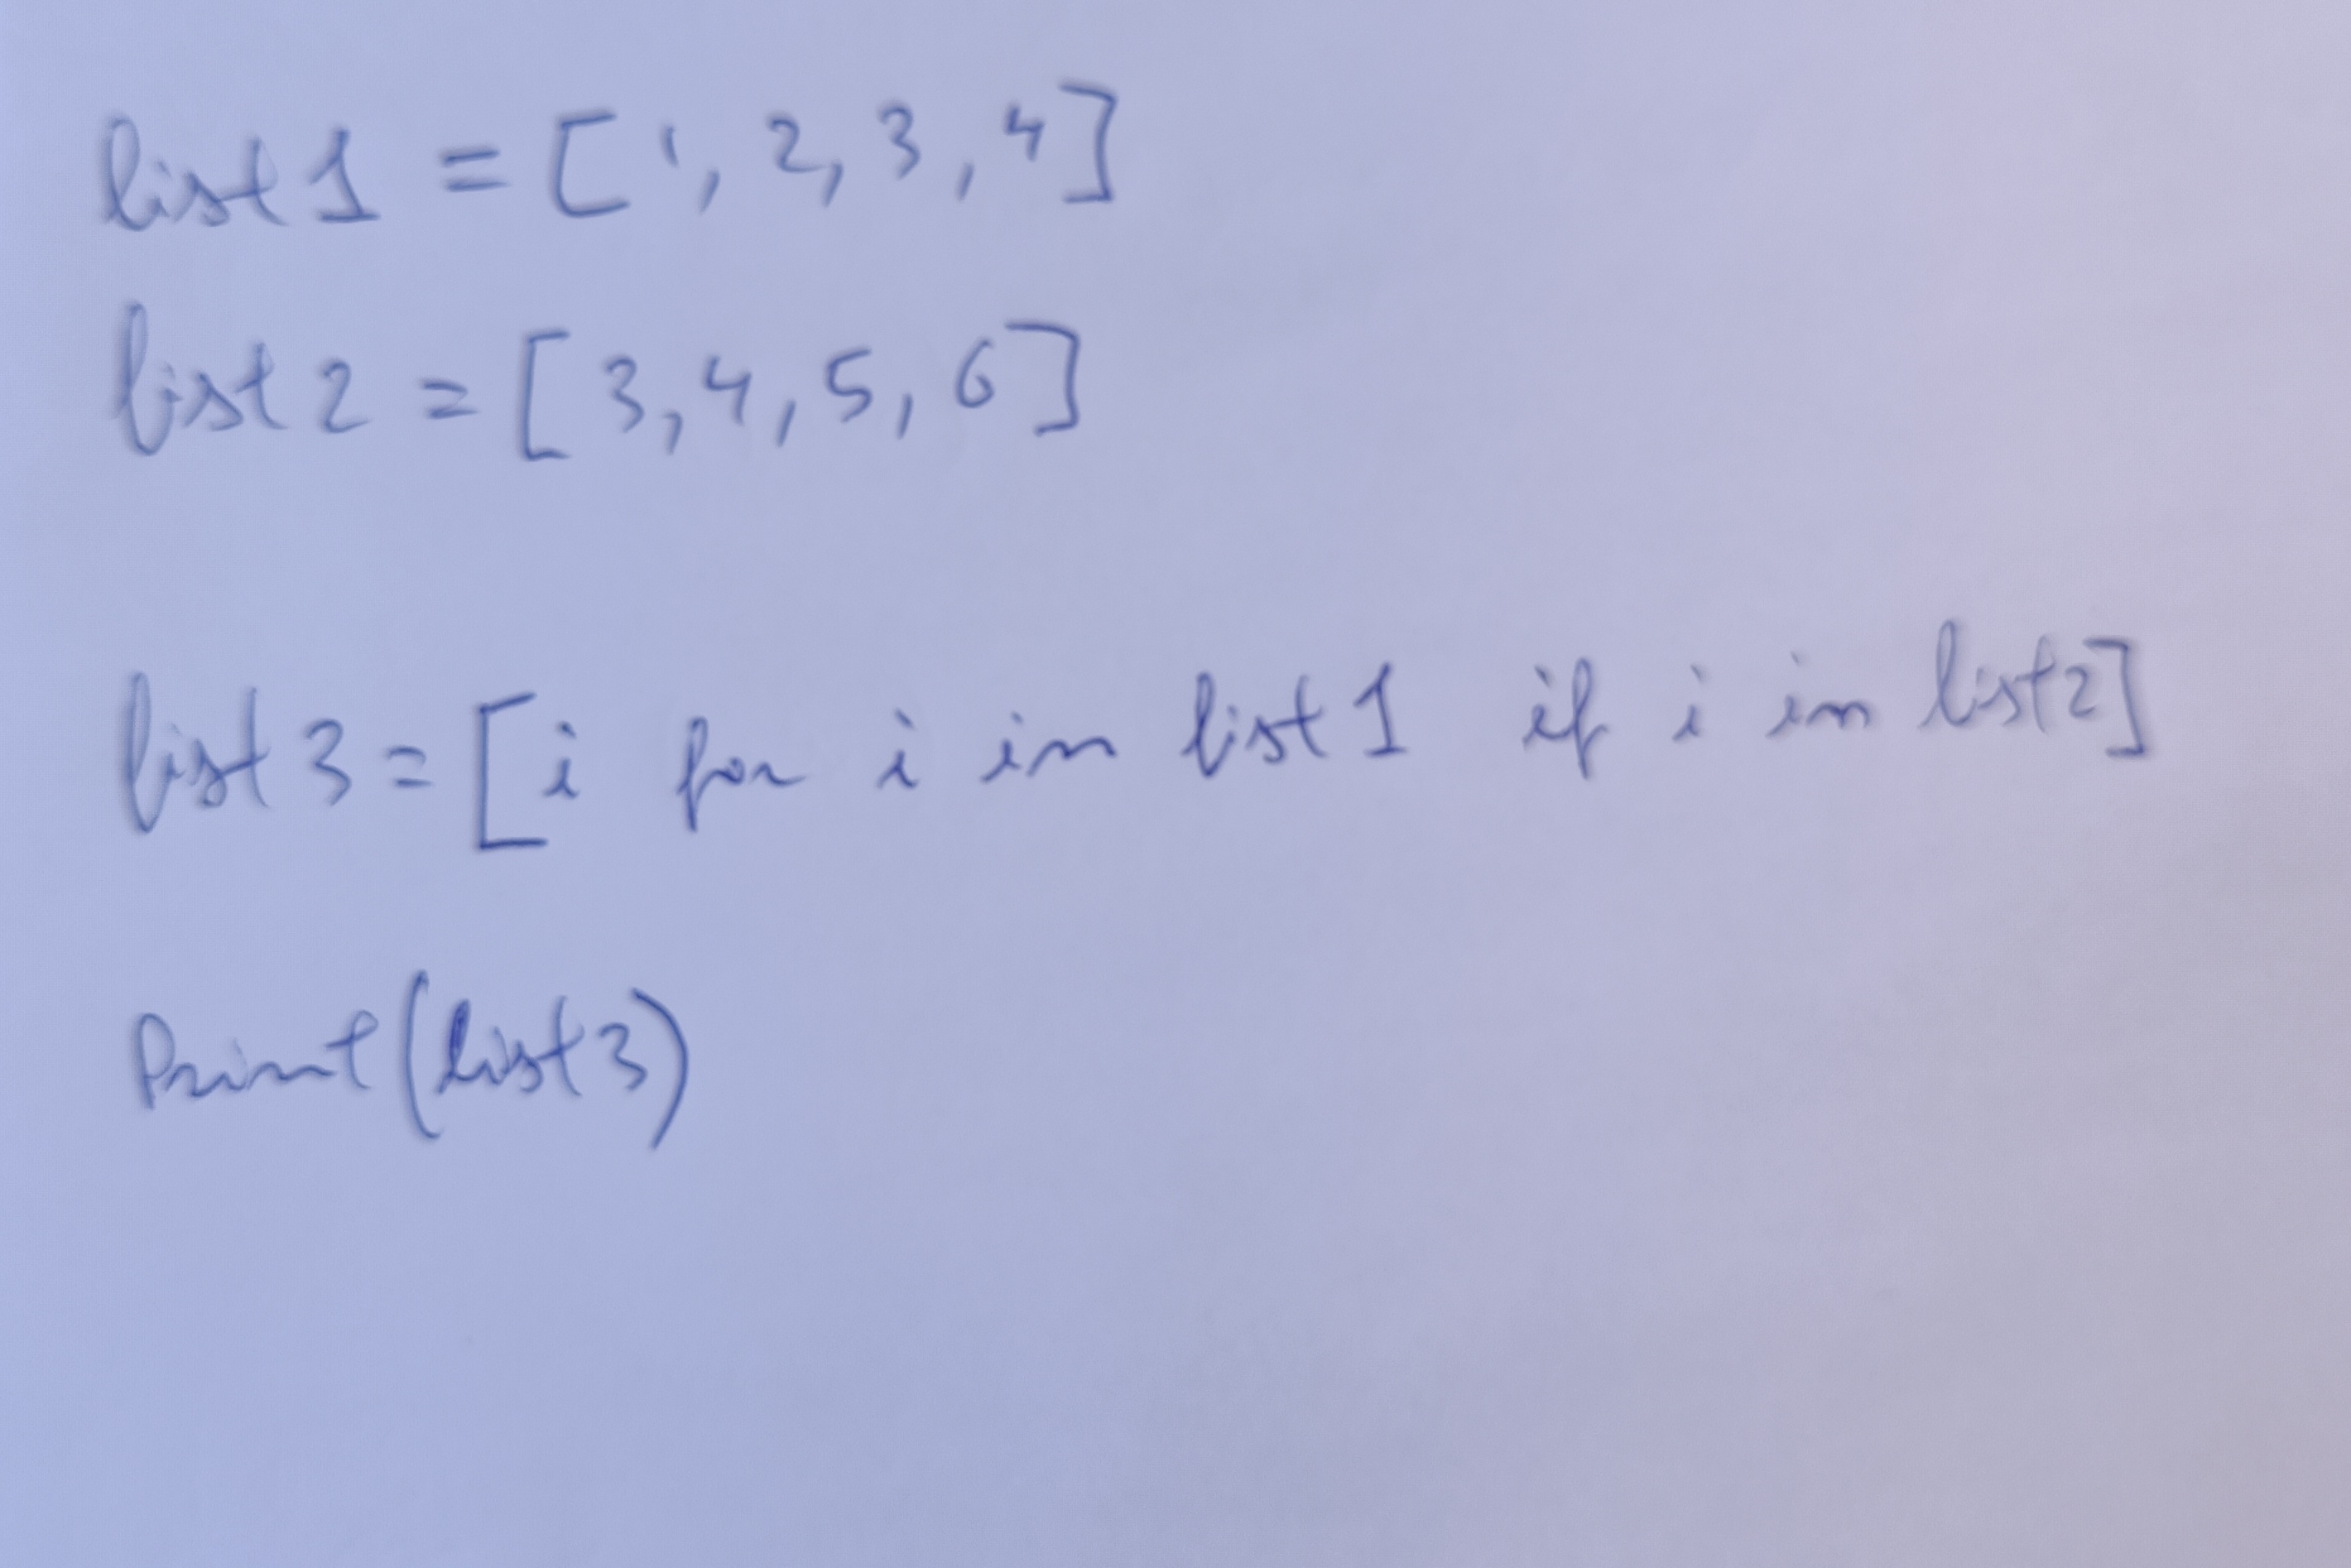 list1 = [1, 2, 3, 4]
list2 = [3, 4, 5, 6]
list3 = [i for i in list1 if i in list2]
Print(list3)